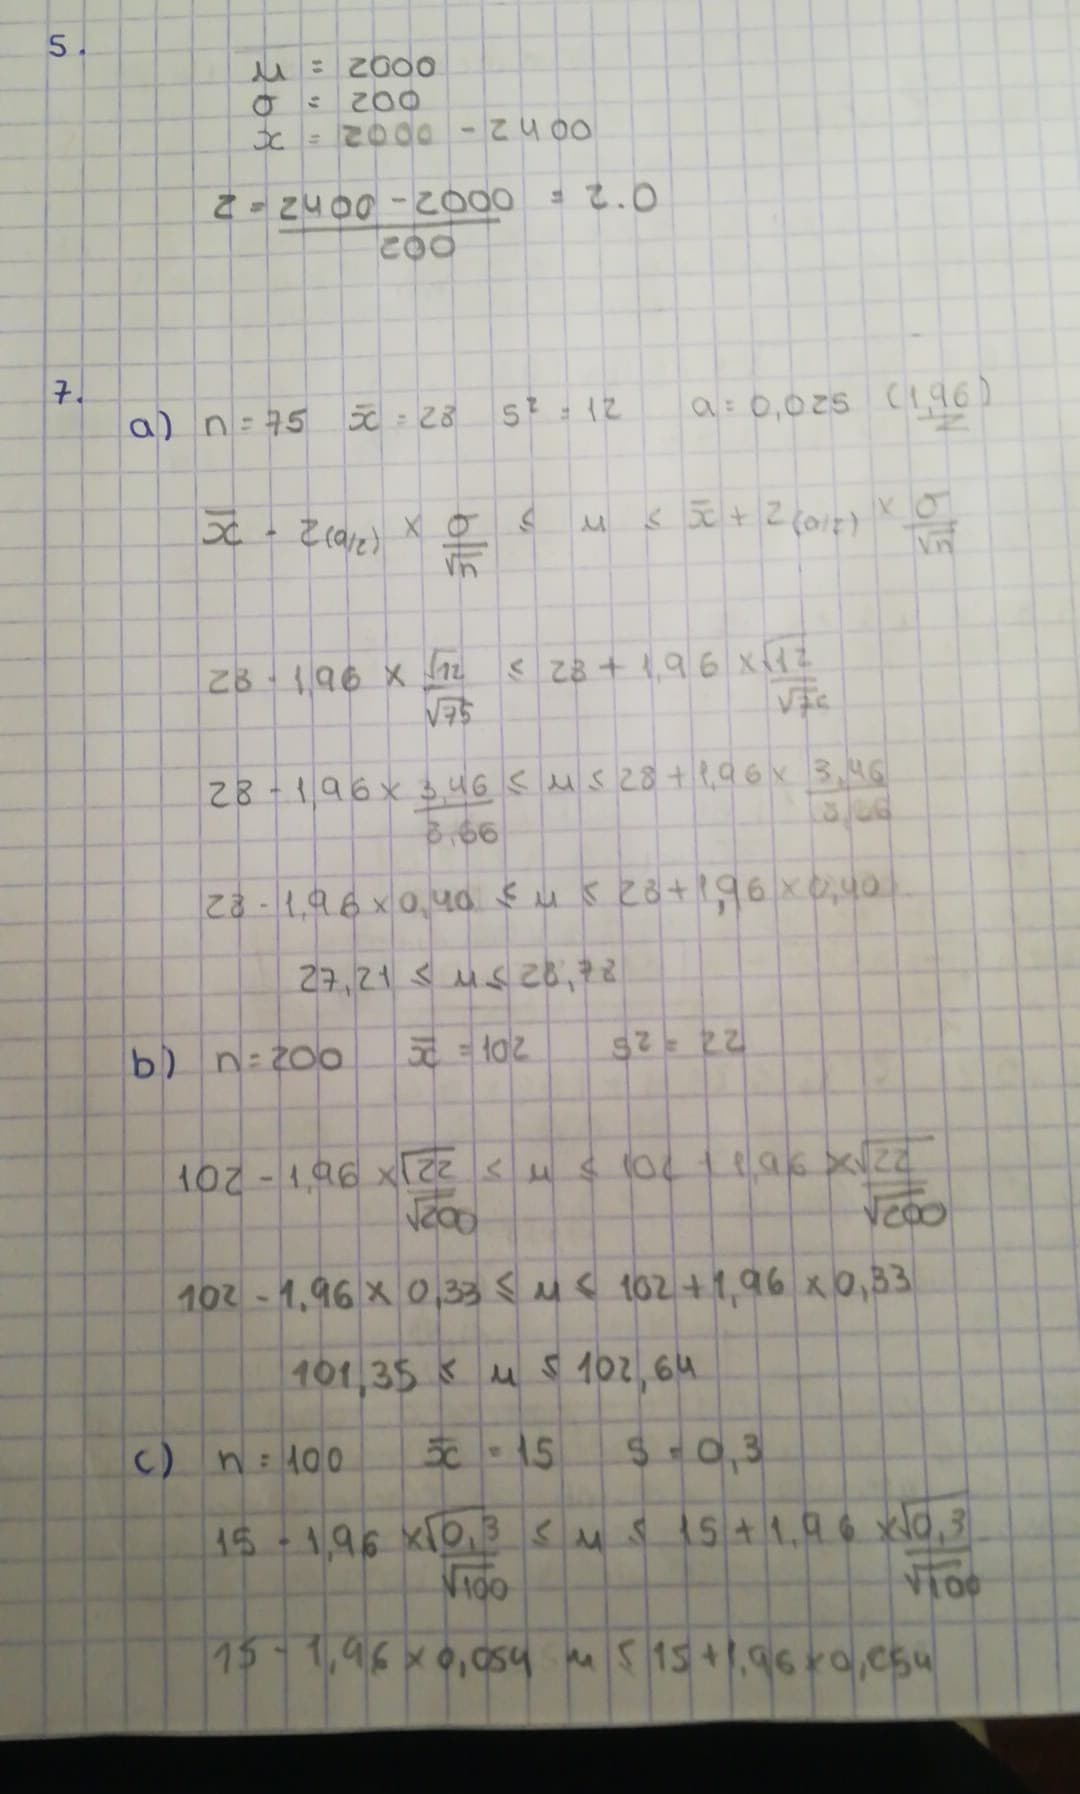 5.
μ = 2000
σ = 200
x = 2000 - 2400
z = 2400 - 2000 = 2.0
200
7.
a) n = 75 x̄ = 28 s² = 12 a = 0,025 (1,96)
z
x̄ - z(a/2) × σ/√n ≤ μ ≤ x̄ + z(a/2) × σ/√n
28 - 1,96 × √12/√75 ≤ 28 + 1,96 × √12/√75
28 - 1,96 × 3,46/8,66 ≤ μ ≤ 28 + 1,96 × 3,46/8,66
28 - 1,96 × 0,40 ≤ μ ≤ 28 + 1,96 × 0,40
27,21 ≤ μ ≤ 28,78
b) n = 200 x̄ = 102 s² = 22
102 - 1,96 × √22/√200 ≤ μ ≤ 102 + 1,96 × √22/√200
102 - 1,96 × 0,33 ≤ μ ≤ 102 + 1,96 × 0,33
101,35 ≤ μ ≤ 102,64
c) n = 100 x̄ = 15 s = 0,3
15 - 1,96 × √0,3/√100 ≤ μ ≤ 15 + 1,96 × √0,3/√100
15 - 1,96 × 0,054 ≤ μ ≤ 15 + 1,96 × 0,054